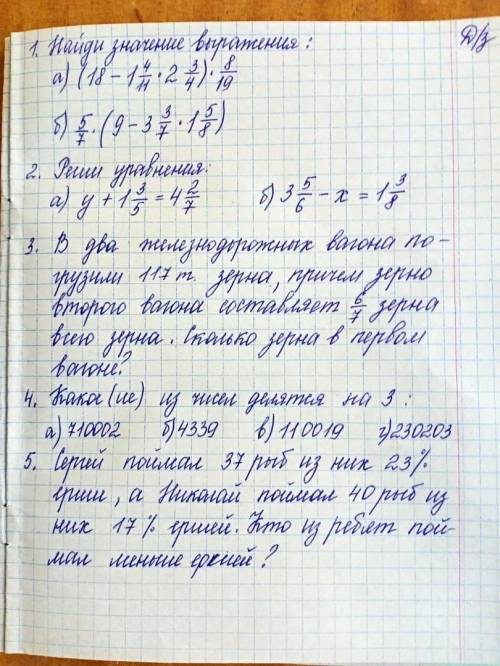 Д/з
1. Найди значение выражения:
а) (18 − 1 4/11 · 2 3/4) · 8/19
б) 5/7 · (9 − 3 3/7 · 1 5/8)
2. Реши уравнения:
а) y + 1 3/5 = 4 2/7 б) 3 5/6 − x = 1 3/8
3. В два железнодорожных вагона по-
грузили 117 т. зерна, причем зерно
второго вагона составляет 6/7 зерна
всего зерна. Сколько зерна в первом
вагоне?
4. Какое(ие) из чисел делятся на 3:
а) 710002 б) 4339 в) 110019 г) 230203
5. Сергей поймал 37 рыб из них 23%
ерши, а Николай поймал 40 рыб из
них 17% ершей. Кто из ребят пой-
мал меньше ершей?